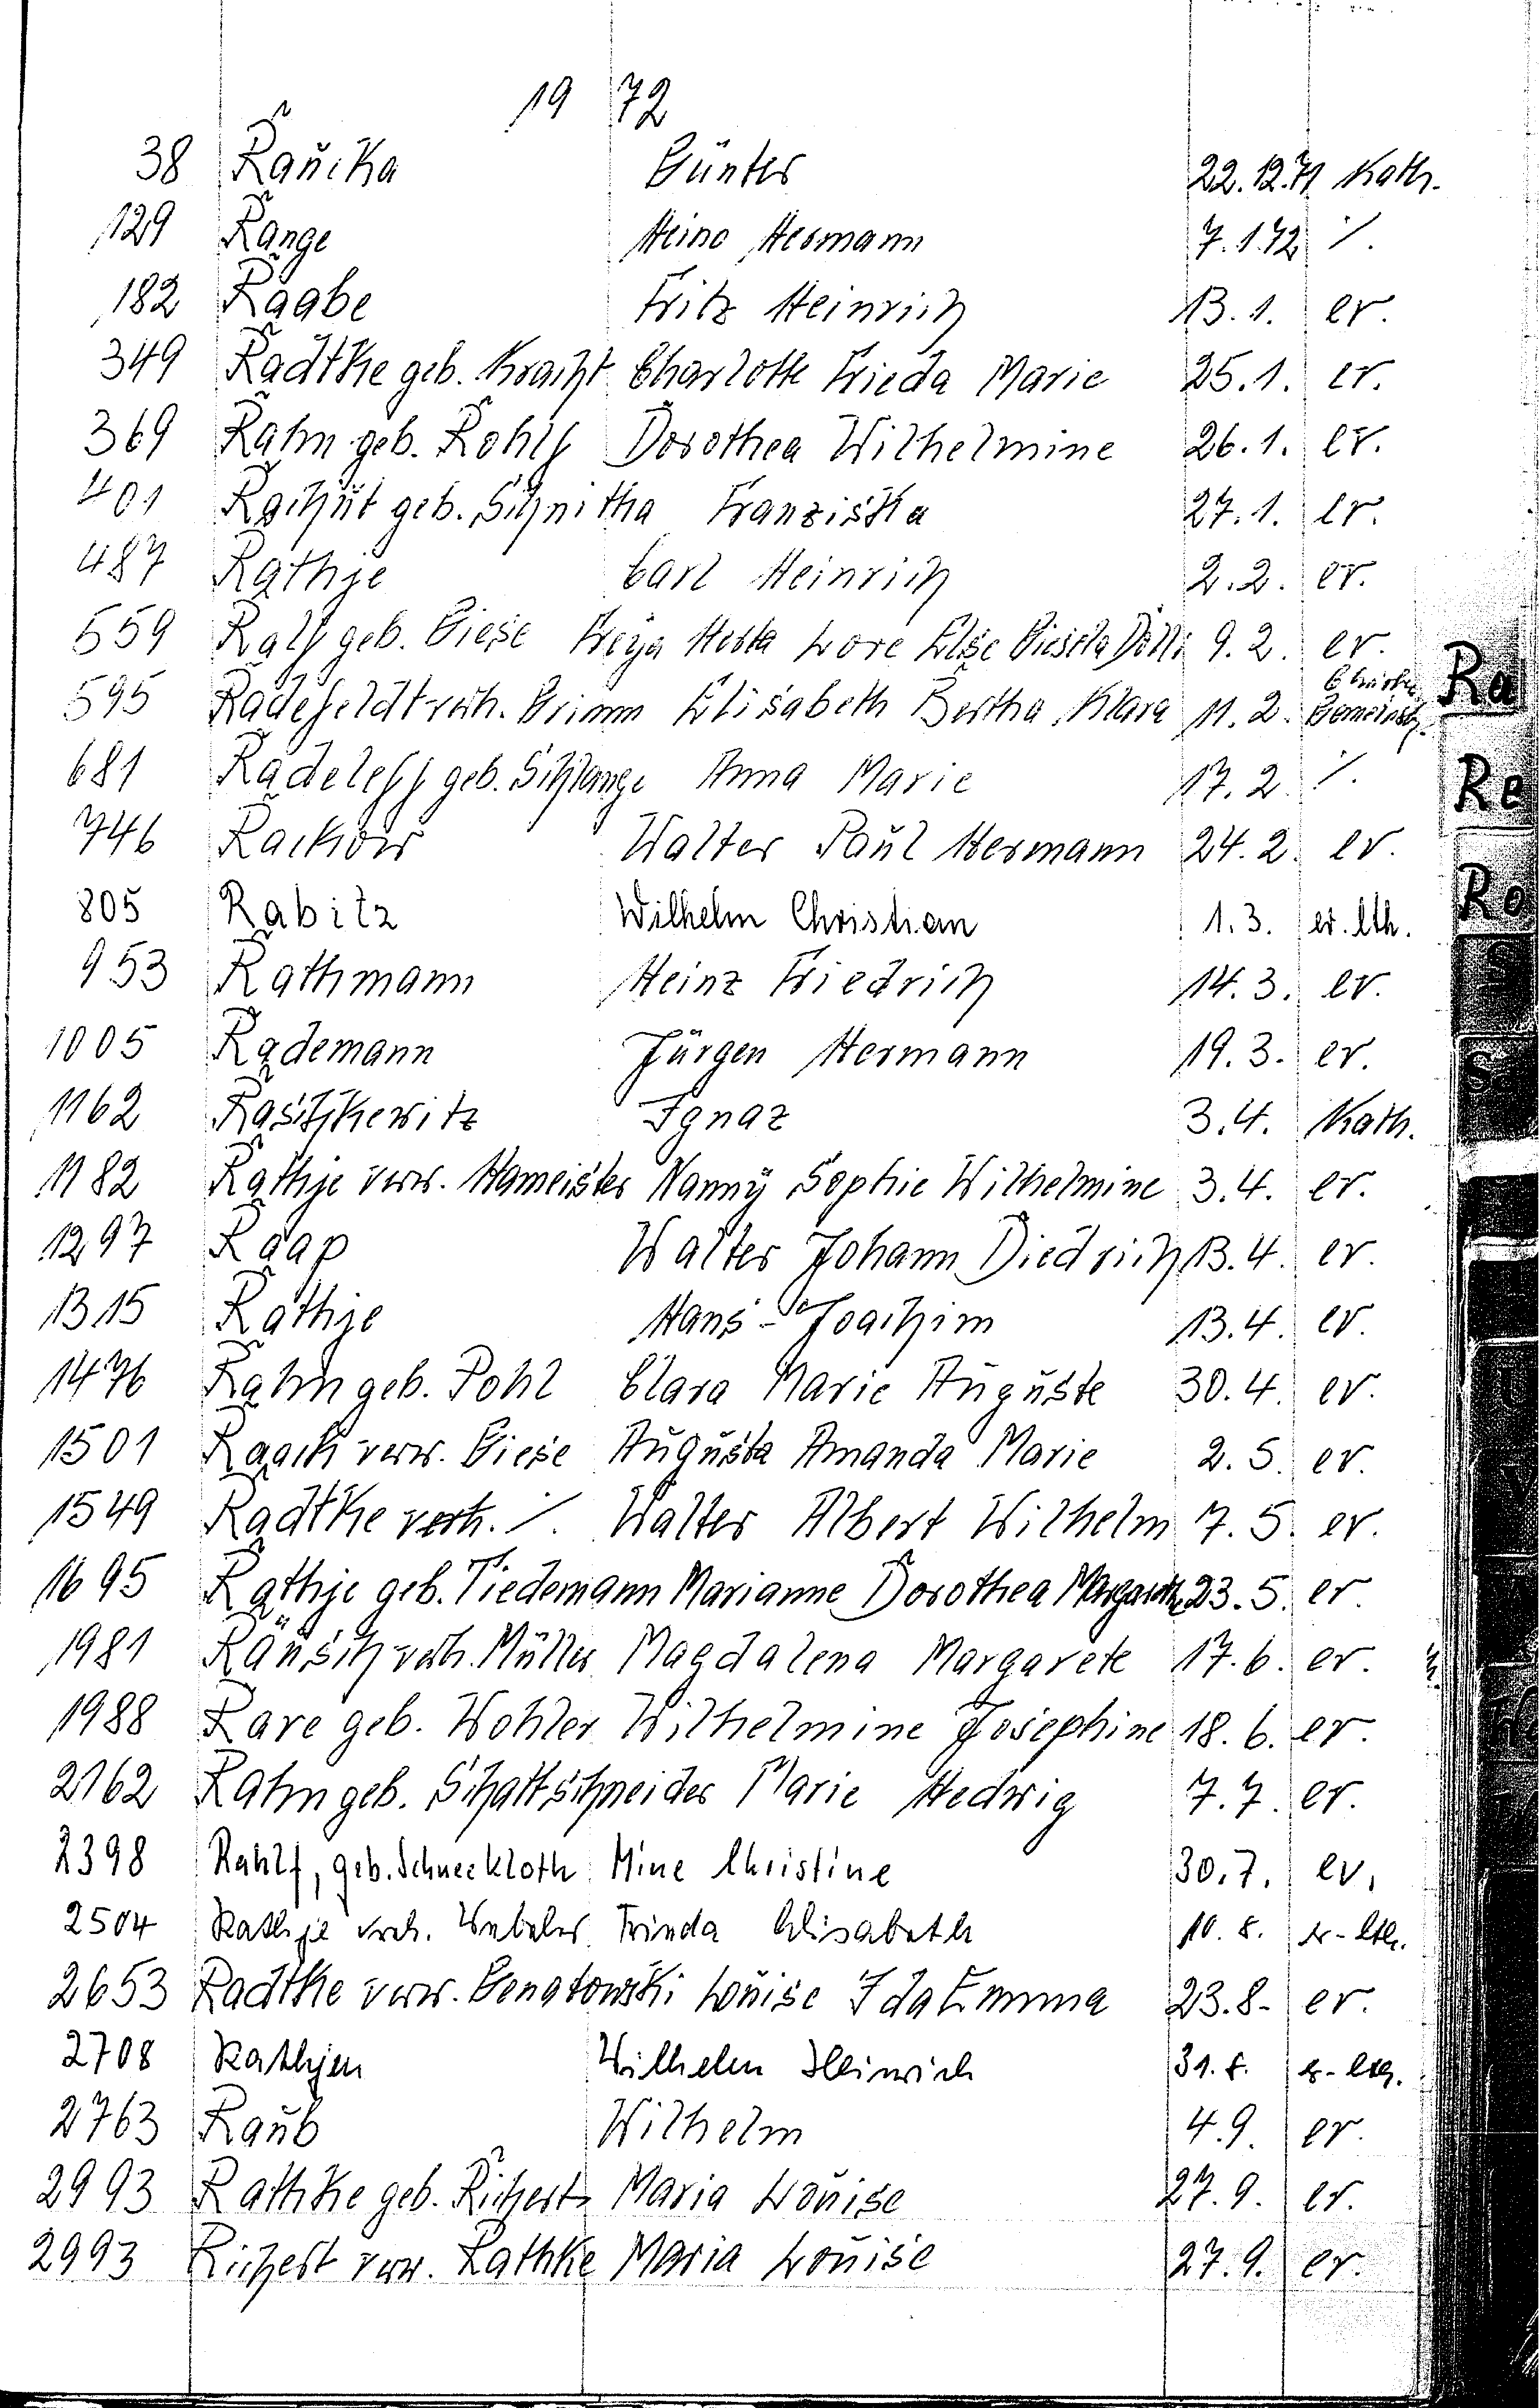 19 72
38 Rauĉka Günter 22.12.71 Kath.
129 Range Heino Hermann 7.1.72 ⁒
182 Raabe Fritz Heinrich 13.1. ev.
349 Radtke geb. Kracht Charlotte Frieda Marie 25.1. ev.
369 Rahn geb. Rohlf Dorothea Wilhelmine 26.1. ev.
401 Rachut geb. Schnitha Franziska 27.1. ev.
487 Rathje Carl Heinrich 2.2. ev.
559 Ralf geb. Giese Freya Herta Lore Else Gisela Dölli 9.2. ev.
595 Radefeldt verh. Grimm Elisabeth Bertha Klara 11.2. Christen Gemeinsch.
681 Radeleff geb. Schlange Anna Marie 17.2. ⁒
746 Rackow Walter Paul Hermann 24.2. ev.
805 Rabitz Wilhelm Christian 1.3. ev. lth.
953 Rathmann Heinz Friedrich 14.3. ev.
1005 Rademann Jürgen Hermann 19.3. ev.
1162 Raschkewitz Ignaz 3.4. Kath.
1182 Rathje verw. Hameister Nanny Sophie Wilhelmine 3.4. ev.
1297 Raap Walter Johann Diedrich 13.4. ev.
1315 Rathje Hans-Joachim 13.4. ev.
1476 Rahn geb. Pohl Clara Marie Auguste 30.4. ev.
1501 Raach verw. Giese Augusta Amanda Marie 2.5. ev.
1549 Radtke verh. ⁒ Walter Albert Wilhelm 7.5. ev.
1695 Rathje geb. Tiedemann Marianne Dorothea Margareth 23.5. ev.
1981 Räusch verh. Müller Magdalena Margarete 17.6. ev.
1988 Rave geb. Wohler Wilhelmine Josephine 18.6. ev.
2162 Rahn geb. Schattschneider Marie Hedwig 7.7. ev.
2398 Rahlf, geb. Schneekloth Mine Christine 30.7. ev.
2504 Rathje verh. Frieda Elisabeth 10.8. ev-lth.
2653 Radtke verw. Genatowski Louise Ida Emma 23.8. ev.
2708 Rathjen Wilhelm Heinrich 31.8. ev-lth.
2763 Raub Wilhelm 4.9. ev.
2993 Rathke geb. Richert Maria Louise 27.9. ev.
2993 Richert verw. Rathke Maria Louise 27.9. ev.
Ra
Re
Ro
S